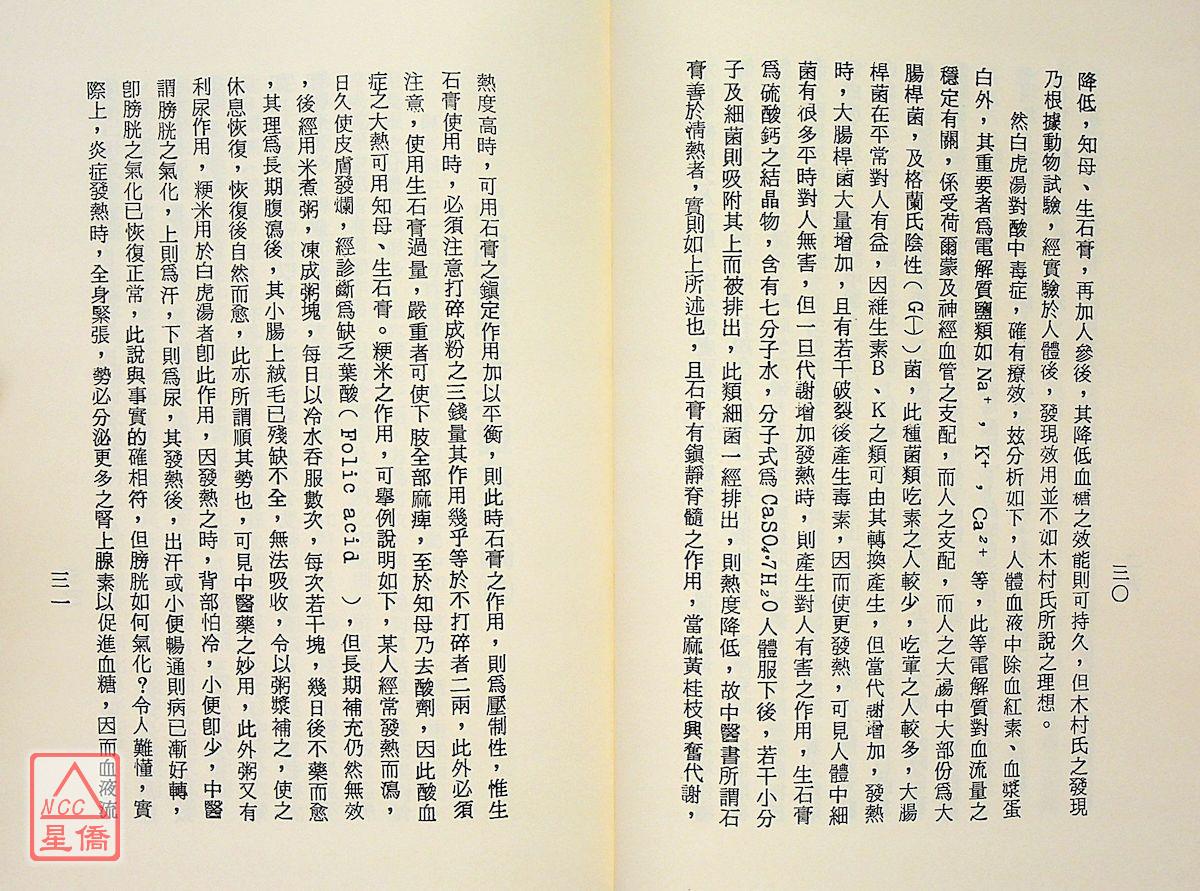 三〇
降低，知母、生石膏，再加人參後，其降低血糖之效能則可持久，但木村氏之發現
乃根據動物試驗，經實驗於人體後，發現效用並不如木村氏所說之理想。
然白虎湯對酸中毒症，確有療效，玆分析如下，人體血液中除血紅素、血漿蛋
白外，其重要者為電解質鹽類如Na⁺，K⁺，Ca²⁺等，此等電解質對血流量之
穩定有關，係受荷爾蒙及神經血管之支配，而人之支配，而人之大腸中大部份為大
腸桿菌，及格蘭氏陰性（G(—)）菌，此種菌類吃素之人較少，吃葷之人較多，大腸
桿菌在平常對人有益，因維生素B、K之類可由其轉換產生，但當代謝增加，發熱
時，大腸桿菌大量增加，且有若干破裂後產生毒素，因而使更發熱，可見人體中細
菌有很多平時對人無害，但一旦代謝增加發熱時，則產生對人有害之作用，生石膏
為硫酸鈣之結晶物，含有七分子水，分子式為CaSO₄·7H₂O人體服下後，若干小分
子及細菌則吸附其上而被排出，此類細菌一經排出，則熱度降低，故中醫書所謂石
膏善於清熱者，實則如上所述也，且石膏有鎭靜脊髓之作用，當麻黃桂枝興奮代謝，
熱度高時，可用石膏之鎭定作用加以平衡，則此時石膏之作用，則為壓制性，惟生
石膏使用時，必須注意打碎成粉之三錢量其作用幾乎等於不打碎者二兩，此外必須
注意，使用生石膏過量，嚴重者可使下肢全部麻痺，至於知母乃去酸劑，因此酸血
症之大熱可用知母、生石膏。粳米之作用，可舉例說明如下，某人經常發熱而瀉，
日久使皮膚發爛，經診斷為缺乏葉酸（Folic acid ），但長期補充仍然無效
，後經用米煮粥，凍成粥塊，每日以冷水吞服數次，每次若干塊，幾日後不藥而愈
，其理為長期腹瀉後，其小腸上絨毛已殘缺不全，無法吸收，令以粥漿補之，使之
休息恢復，恢復後自然而愈，此亦所謂順其勢也，可見中醫藥之妙用，此外粥又有
利尿作用，粳米用於白虎湯者卽此作用，因發熱之時，背部怕冷，小便卽少，中醫
謂膀胱之氣化，上則為汗，下則為尿，其發熱後，出汗或小便暢通則病已漸好轉，
卽膀胱之氣化已恢復正常，此說與事實的確相符，但膀胱如何氣化？令人難懂，實
際上，炎症發熱時，全身緊張，勢必分泌更多之腎上腺素以促進血糖，因而血液流
三一
NCC
星僑